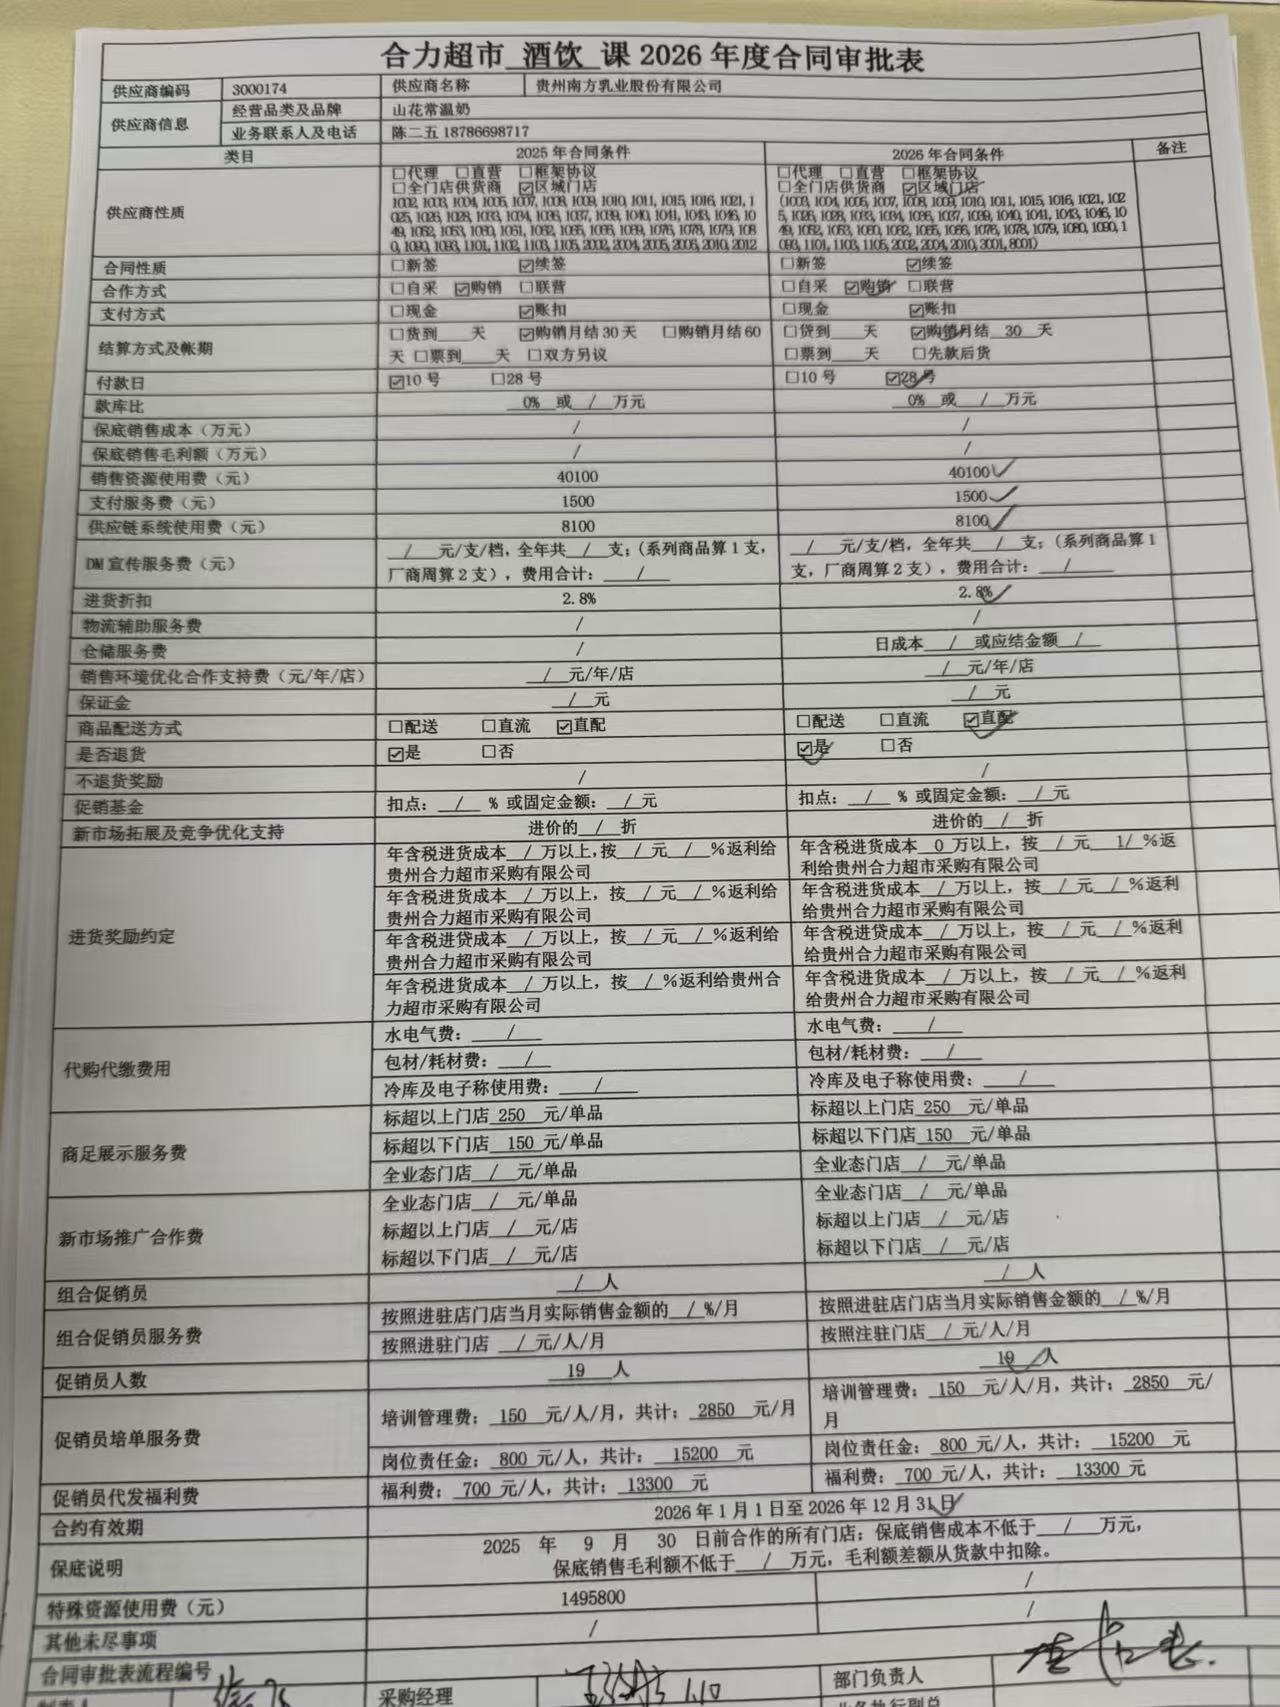 合力超市 酒饮 课 2026 年度合同审批表
供应商编码 3000174 供应商名称 贵州南方乳业股份有限公司
供应商信息 经营品类及品牌 山花常温奶
业务联系人及电话 陈二五 18786698717
类目 2025 年合同条件 2026 年合同条件 备注
供应商性质
□代理 □直营 □框架协议
□全门店供货商 ☑区域门店
1002, 1003, 1004, 1005, 1007, 1008, 1009, 1010, 1011, 1015, 1016, 1021, 1
025, 1026, 1028, 1033, 1034, 1036, 1037, 1039, 1040, 1041, 1043, 1046, 10
49, 1052, 1053, 1060, 1061, 1062, 1065, 1066, 1069, 1076, 1078, 1079, 108
0, 1090, 1093, 1101, 1102, 1103, 1105, 2002, 2004, 2005, 2006, 2010, 2012
□代理 □直营 □框架协议
□全门店供货商 ☑区域门店
(1003, 1004, 1005, 1007, 1008, 1009, 1010, 1011, 1015, 1016, 1021, 102
5, 1026, 1028, 1033, 1034, 1036, 1037, 1039, 1040, 1041, 1043, 1046, 10
49, 1052, 1053, 1060, 1062, 1065, 1066, 1076, 1078, 1079, 1080, 1090, 1
093, 1101, 1103, 1105, 2002, 2004, 2010, 3001, 8001)
合同性质 □新签 ☑续签 □新签 ☑续签
合作方式 □自采 ☑购销 □联营 □自采 ☑购销 □联营
支付方式 □现金 ☑账扣 □现金 ☑账扣
结算方式及帐期
□货到____天 ☑购销月结 30 天 □购销月结 60
天 □票到____天 □双方另议
□贷到____天 ☑购销月结 30 天
□票到____天 □先款后货
付款日 ☑10 号 □28 号 □10 号 ☑28 号
款库比 0% 或 / 万元 0% 或 / 万元
保底销售成本（万元） / /
保底销售毛利额（万元） / /
销售资源使用费（元） 40100 40100
支付服务费（元） 1500 1500
供应链系统使用费（元） 8100 8100
DM 宣传服务费（元）
/ 元/支/档，全年共 / 支；（系列商品算 1 支，
厂商周算 2 支），费用合计： /
/ 元/支/档，全年共 / 支；（系列商品算 1
支，厂商周算 2 支），费用合计： /
进货折扣 2.8% 2.8%
物流辅助服务费 / /
仓储服务费 / 日成本 / 或应结金额 /
销售环境优化合作支持费（元/年/店） / 元/年/店 / 元/年/店
保证金 / 元 / 元
商品配送方式 □配送 □直流 ☑直配 □配送 □直流 ☑直配
是否退货 ☑是 □否 ☑是 □否
不退货奖励 / /
促销基金 扣点： / % 或固定金额： / 元 扣点： / % 或固定金额： / 元
新市场拓展及竞争优化支持 进价的 / 折 进价的 / 折
进货奖励约定
年含税进货成本 / 万以上，按 / 元 / %返利给
贵州合力超市采购有限公司
年含税进货成本 / 万以上，按 / 元 / %返利给
贵州合力超市采购有限公司
年含税进贷成本 / 万以上，按 / 元 / %返利给
贵州合力超市采购有限公司
年含税进货成本 / 万以上，按 / %返利给贵州合
力超市采购有限公司
年含税进货成本 0 万以上，按 / 元 1/ %返
利给贵州合力超市采购有限公司
年含税进货成本 / 万以上，按 / 元 / %返利
给贵州合力超市采购有限公司
年含税进贷成本 / 万以上，按 / 元 / %返利
给贵州合力超市采购有限公司
年含税进货成本 / 万以上，按 / 元 / %返利
给贵州合力超市采购有限公司
代购代缴费用
水电气费： / 水电气费： /
包材/耗材费： / 包材/耗材费： /
冷库及电子称使用费： / 冷库及电子称使用费： /
商足展示服务费
标超以上门店 250 元/单品 标超以上门店 250 元/单品
标超以下门店 150 元/单品 标超以下门店 150 元/单品
全业态门店 / 元/单品 全业态门店 / 元/单品
新市场推广合作费
全业态门店 / 元/单品 全业态门店 / 元/单品
标超以上门店 / 元/店 标超以上门店 / 元/店
标超以下门店 / 元/店 标超以下门店 / 元/店
组合促销员 / 人 / 人
组合促销员服务费
按照进驻店门店当月实际销售金额的 / %/月 按照进驻店门店当月实际销售金额的 / %/月
按照进驻门店 / 元/人/月 按照注驻门店 / 元/人/月
促销员人数 19 人 19 人
促销员培单服务费
培训管理费： 150 元/人/月，共计： 2850 元/月
岗位责任金： 800 元/人，共计： 15200 元
培训管理费： 150 元/人/月，共计： 2850 元/
月
岗位责任金： 800 元/人，共计： 15200 元
促销员代发福利费 福利费： 700 元/人，共计： 13300 元 福利费： 700 元/人，共计： 13300 元
合约有效期 2026 年 1 月 1 日至 2026 年 12 月 31 日
保底说明
2025 年 9 月 30 日前合作的所有门店；保底销售成本不低于 / 万元，
保底销售毛利额不低于 / 万元，毛利额差额从货款中扣除。
特殊资源使用费（元） 1495800 /
其他未尽事项 / /
合同审批表流程编号
采购经理 1.10 部门负责人